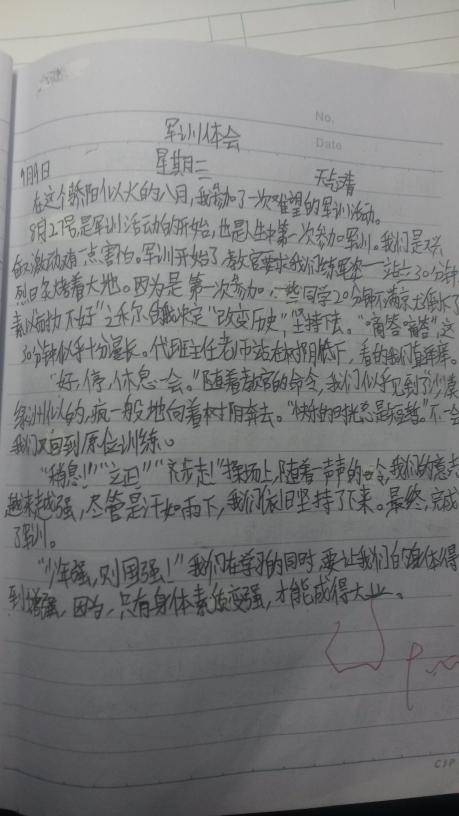 No.
军训体会
Date
9月9日 星期三 天气:晴
在这个骄阳似火的八月,我参加了一次难忘的军训活动。
8月27号是军训活动的开始,也是人生中第一次参加军训。我们是又兴
奋激动有一点害怕。军训开始了,教官要求我们练军姿——站立30分钟
烈日炙烤着大地。因为是第一次参加,一些同学20分钟不满
30分钟似乎十分漫长。代班主任老师站在树阴底下,看的我们直羡慕。
“好,停,休息一会。”随着教官的命令,我们似乎见到了沙漠
绿州似的,疯一般地向着树阴奔去。“快乐的时光总是短暂。”不一会
我们又回到原位训练。
“稍息!”“立正”“齐步走!”操场上,随着一声声的口令,我们的意志
越来越强,尽管是汗如雨下,我们依旧坚持了下来。最终,完成
了军训。
“少年强,则国强!”我们在学习的同时,要让我们的身体得
到增强,因为,只有身体素质变强,才能成得大业。